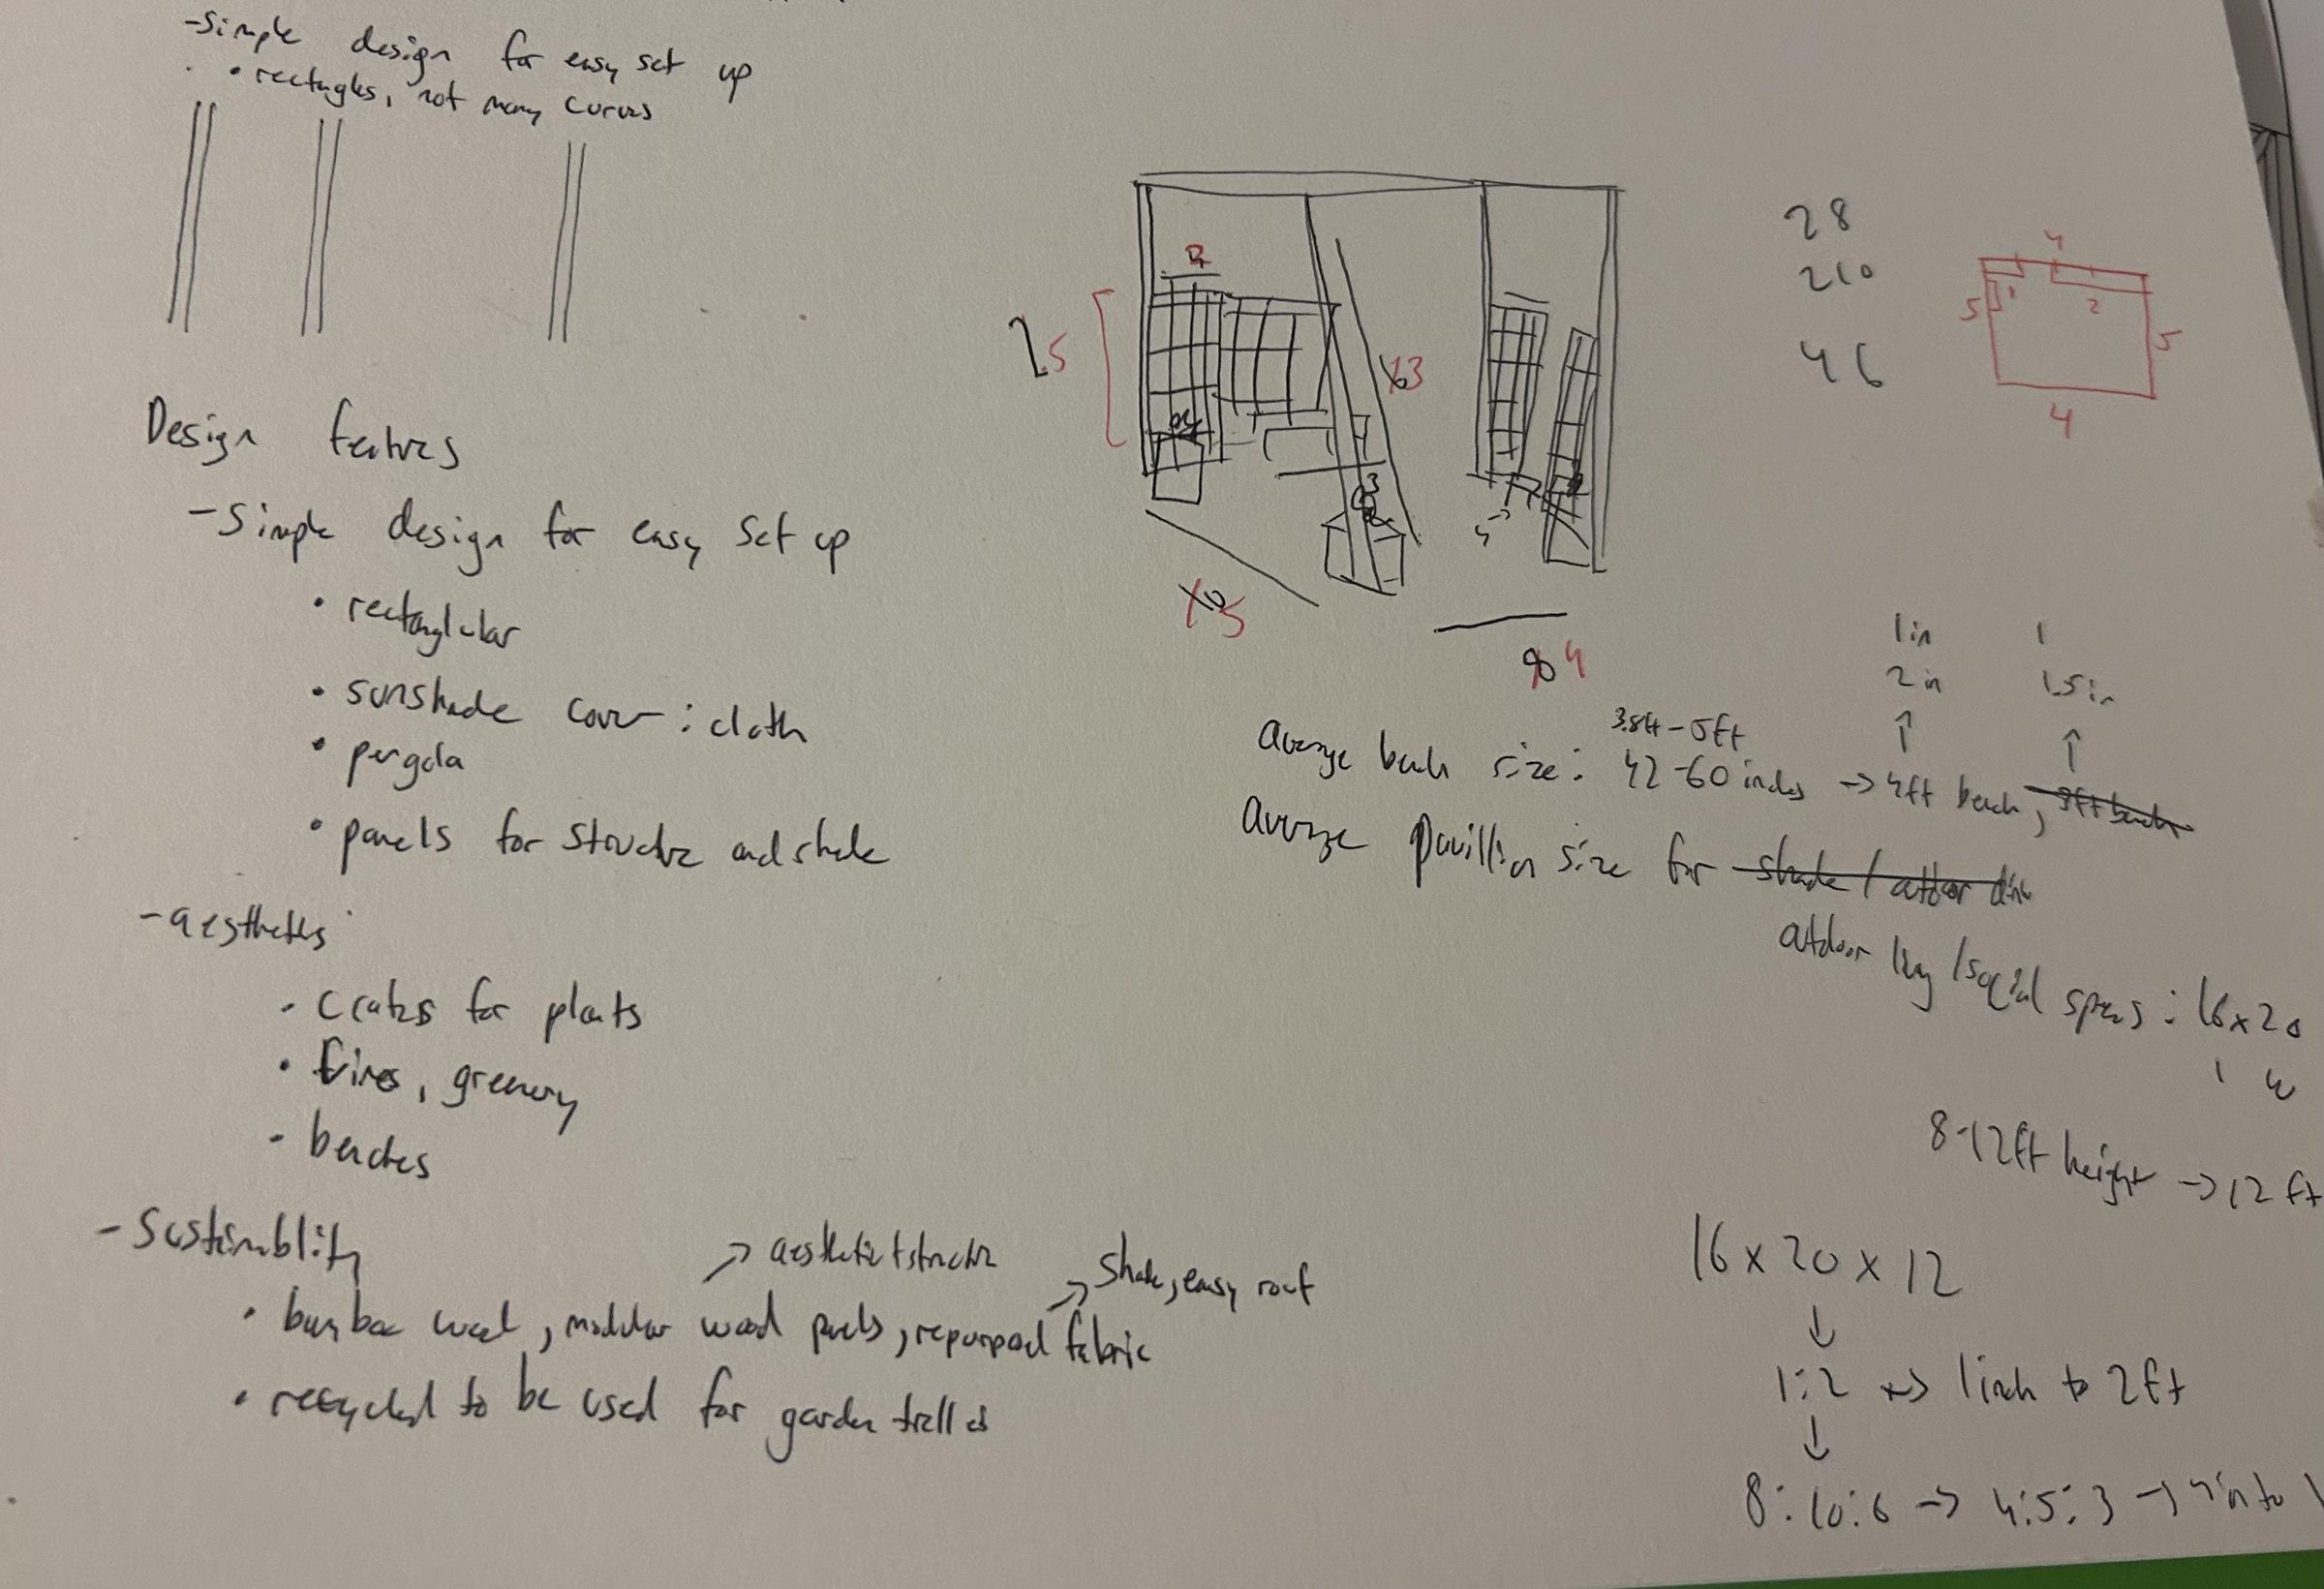 -Simple design for easy set up
• rectangles, not many curves
Design features
-Simple design for easy set up
• rectanglular
• sunshade cover : cloth
• pergola
• panels for structure and shade
-aesthetics
• crates for plants
• vines, greenery
- benches
-Sustainability
→ aesthetic + structure
→ shade, easy roof
• bamboo wood, modular wood panels, repurposed fabric
• recycled to be used for garden trellis
2
1.5
3
5
4
28
210
46
4
5
1
2
5
4
1in
1
2 in
1.5 in
↑
↑
3.8ft - 5ft
average bench size: 42-60 inches → 4ft bench, 3ft bench
average pavillion size for shade / outdoor
outdoor living /social spaces : 16x20
l w
8-12ft height → 12 ft
16 x 20 x 12
↓
1:2 → 1 inch to 2ft
↓
8:10:6 → 4:5:3 → 4in to 1